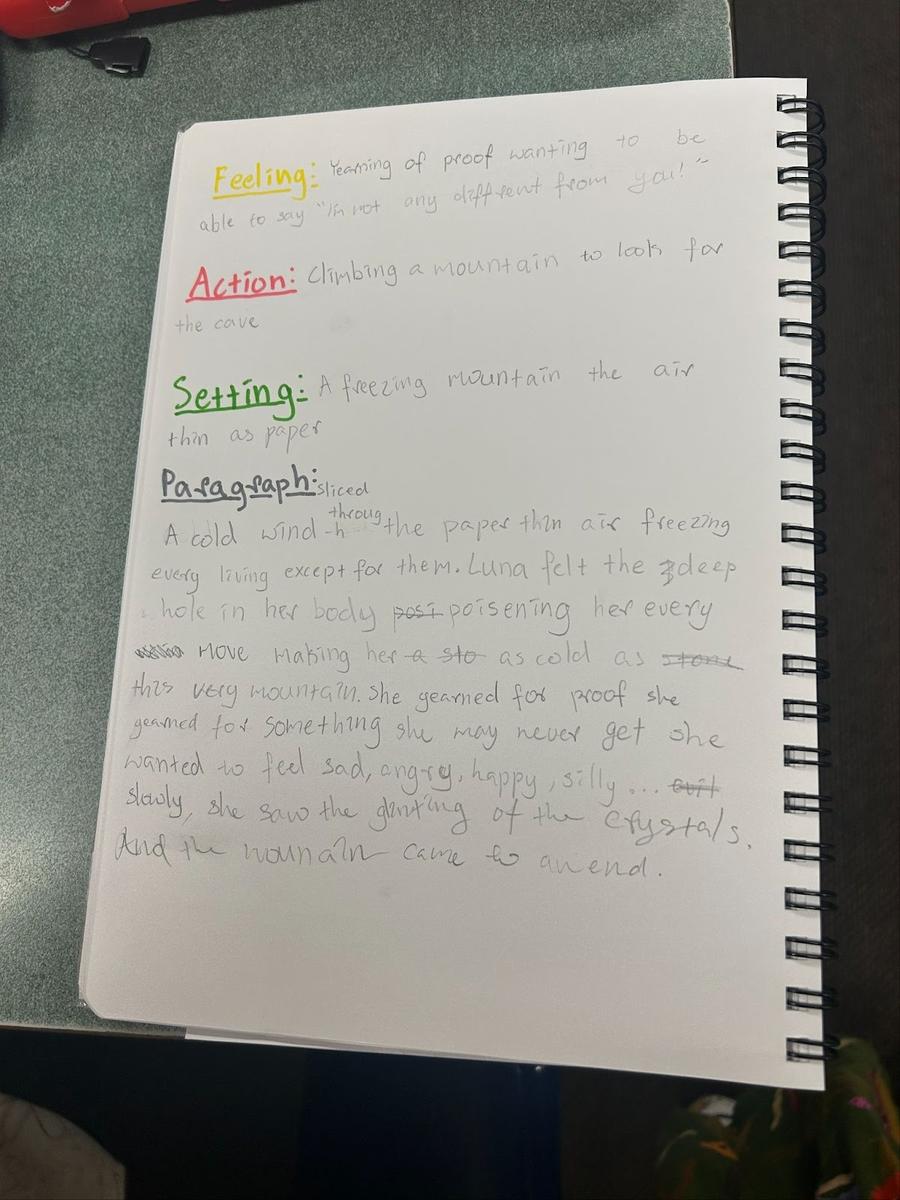 Feeling: Yearning of proof wanting to be
able to say "I'm not any different from you!"
Action: Climbing a mountain to look for
the cave
Setting: A freezing mountain the air
thin as paper
Paragraph:
A cold wind sliced through the paper thin air freezing
every living except for them. Luna felt the deep
hole in her body posi poisening her every
move making her a sto as cold as stone
this very mountain. She yearned for proof she
yearned for something she may never get she
wanted to feel sad, angry, happy, silly...
slowly, she saw the glinting of the crystals.
And the mounain came to an end.